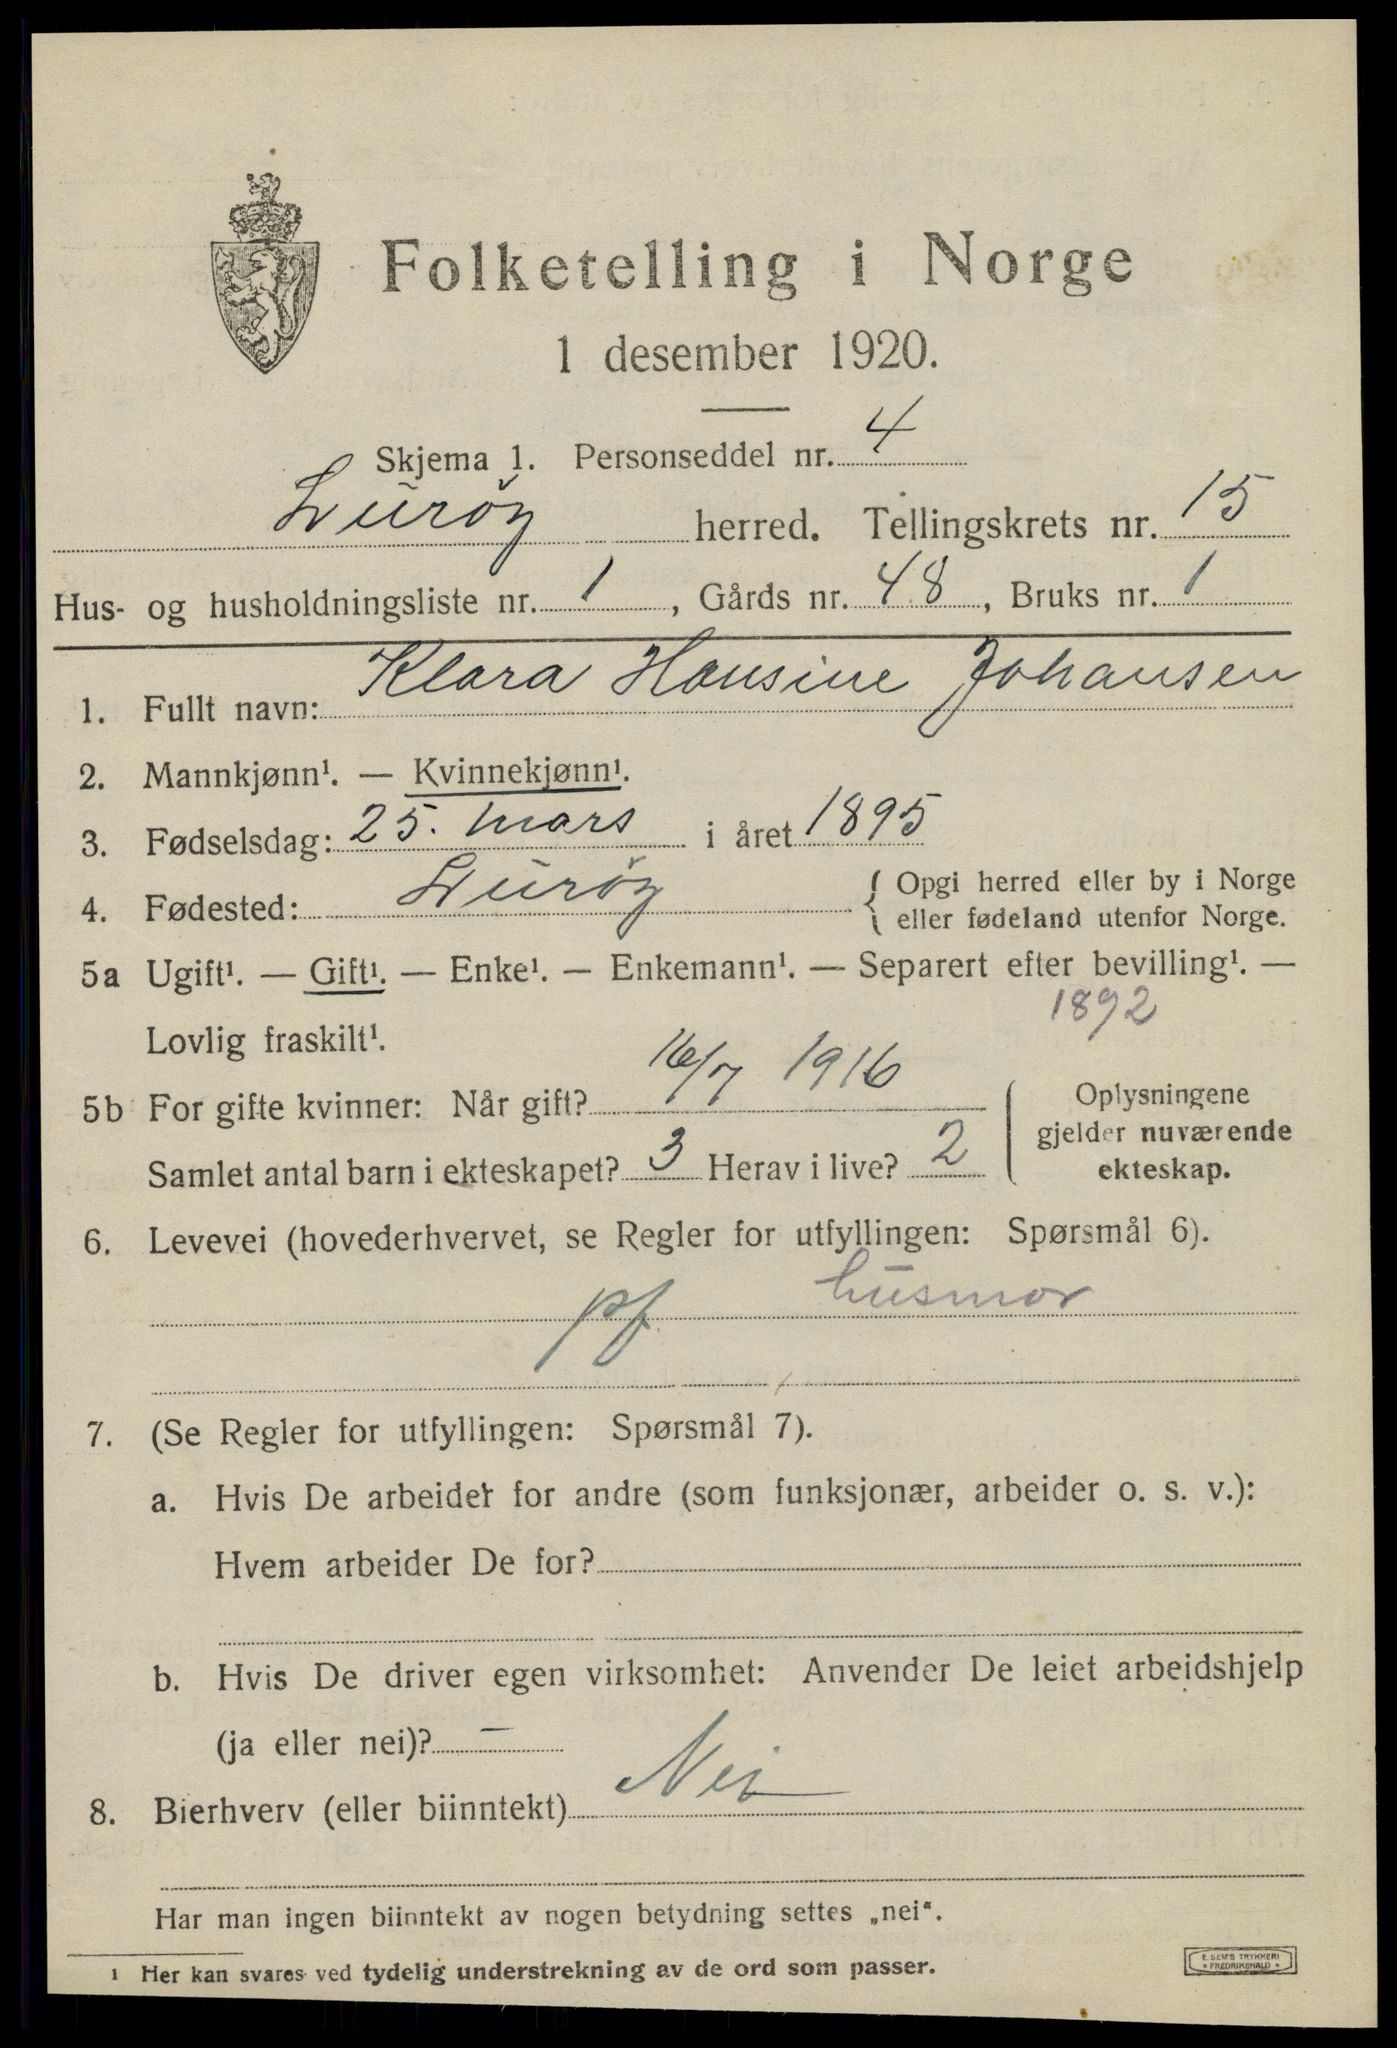 Folketelling i Norge
1 desember 1920.
Skjema 1. Personseddel nr. 4
Lurøy herred. Tellingskrets nr. 15
Hus- og husholdningsliste nr. 1, Gårds nr. 48, Bruks nr. 1
1. Fullt navn: Klara Hansine Johansen
2. Mannkjønn¹. — Kvinnekjønn¹.
3. Fødselsdag: 25. mars i året 1895
4. Fødested: Lurøy { Opgi herred eller by i Norge
eller fødeland utenfor Norge.
5a Ugift¹. — Gift¹. — Enke¹. — Enkemann¹. — Separert efter bevilling¹. —
Lovlig fraskilt¹. 1892
5b For gifte kvinner: Når gift? 16/7 1916
Samlet antal barn i ekteskapet? 3 Herav i live? 2
Oplysningene
gjelder nuværende
ekteskap.
6. Levevei (hovederhvervet, se Regler for utfyllingen: Spørsmål 6).
pf husmor
7. (Se Regler for utfyllingen: Spørsmål 7).
a. Hvis De arbeider for andre (som funksjonær, arbeider o. s. v.):
Hvem arbeider De for?
b. Hvis De driver egen virksomhet: Anvender De leiet arbeidshjelp
(ja eller nei)? —
8. Bierhverv (eller biinntekt) Nei
Har man ingen biinntekt av nogen betydning settes „nei“.
¹ Her kan svares ved tydelig understrekning av de ord som passer.
E SEM'S TRYKKERI
* FREDRIKSHALD *